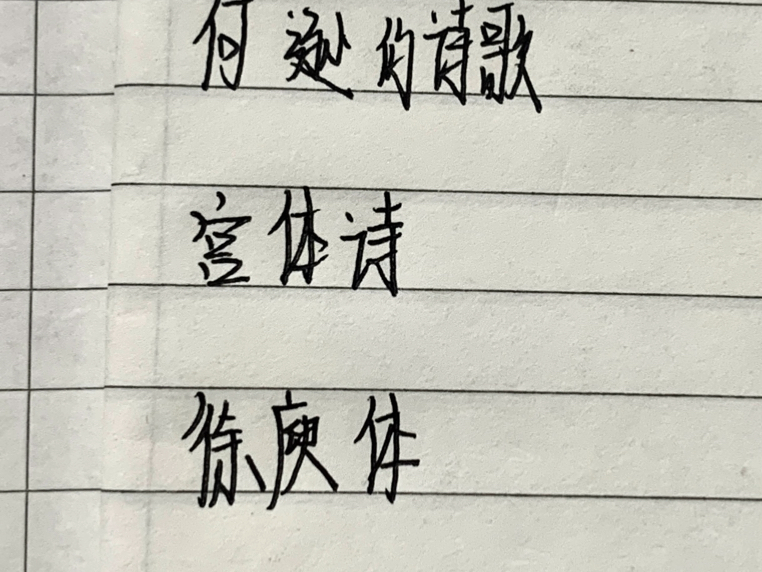 何逊的诗歌
宫体诗
徐庾体